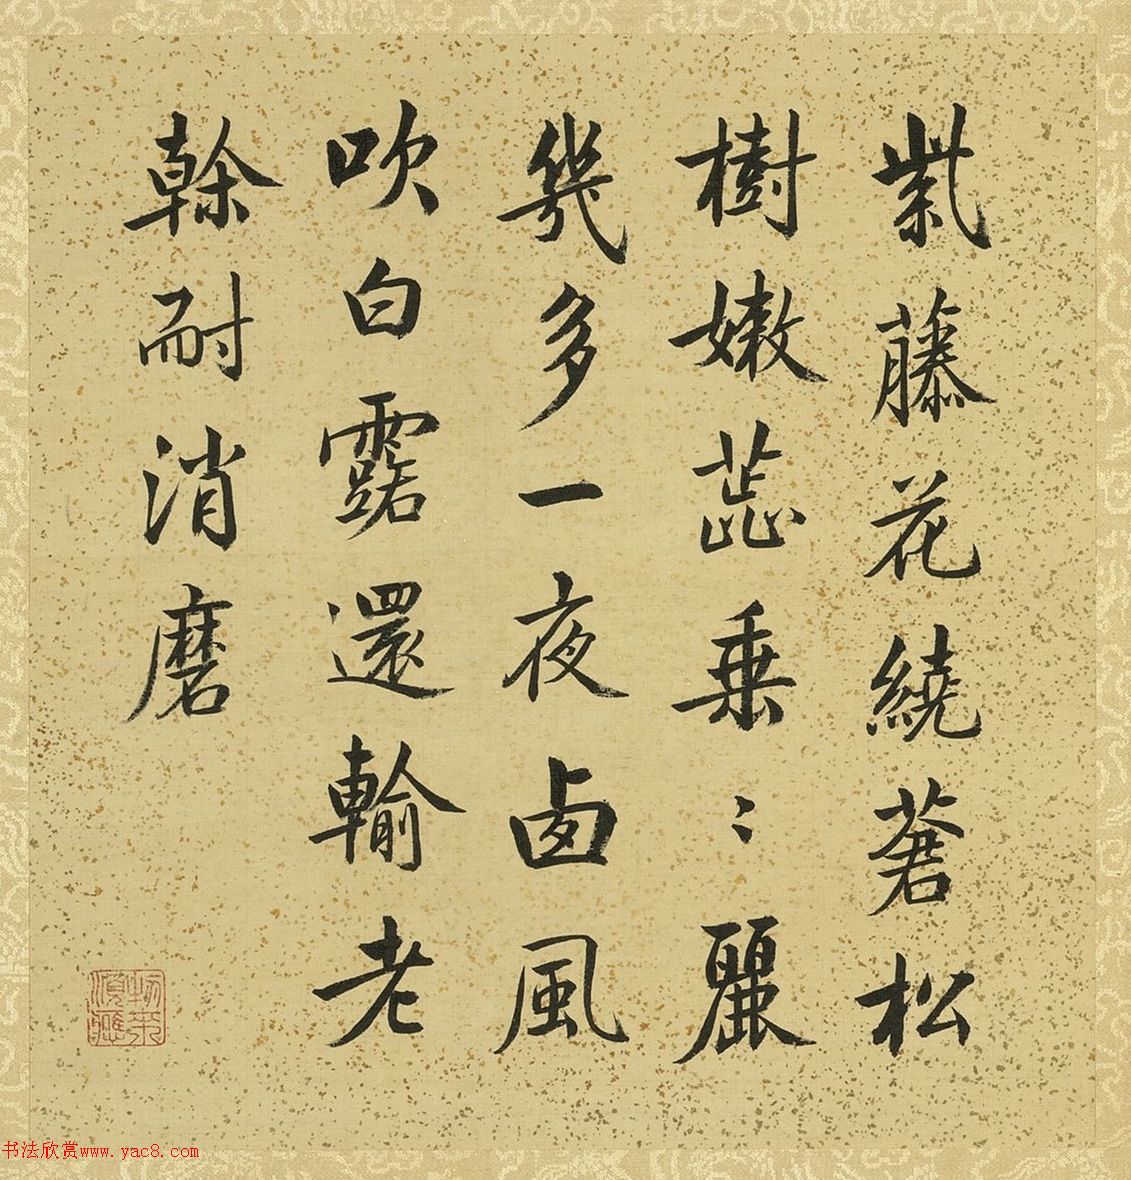 紫藤花繞蒼松
樹嫩蕊垂〻麗
幾多一夜西風
吹白露還輸老
榦耐消磨
物來順應
书法欣赏www.yac8.com